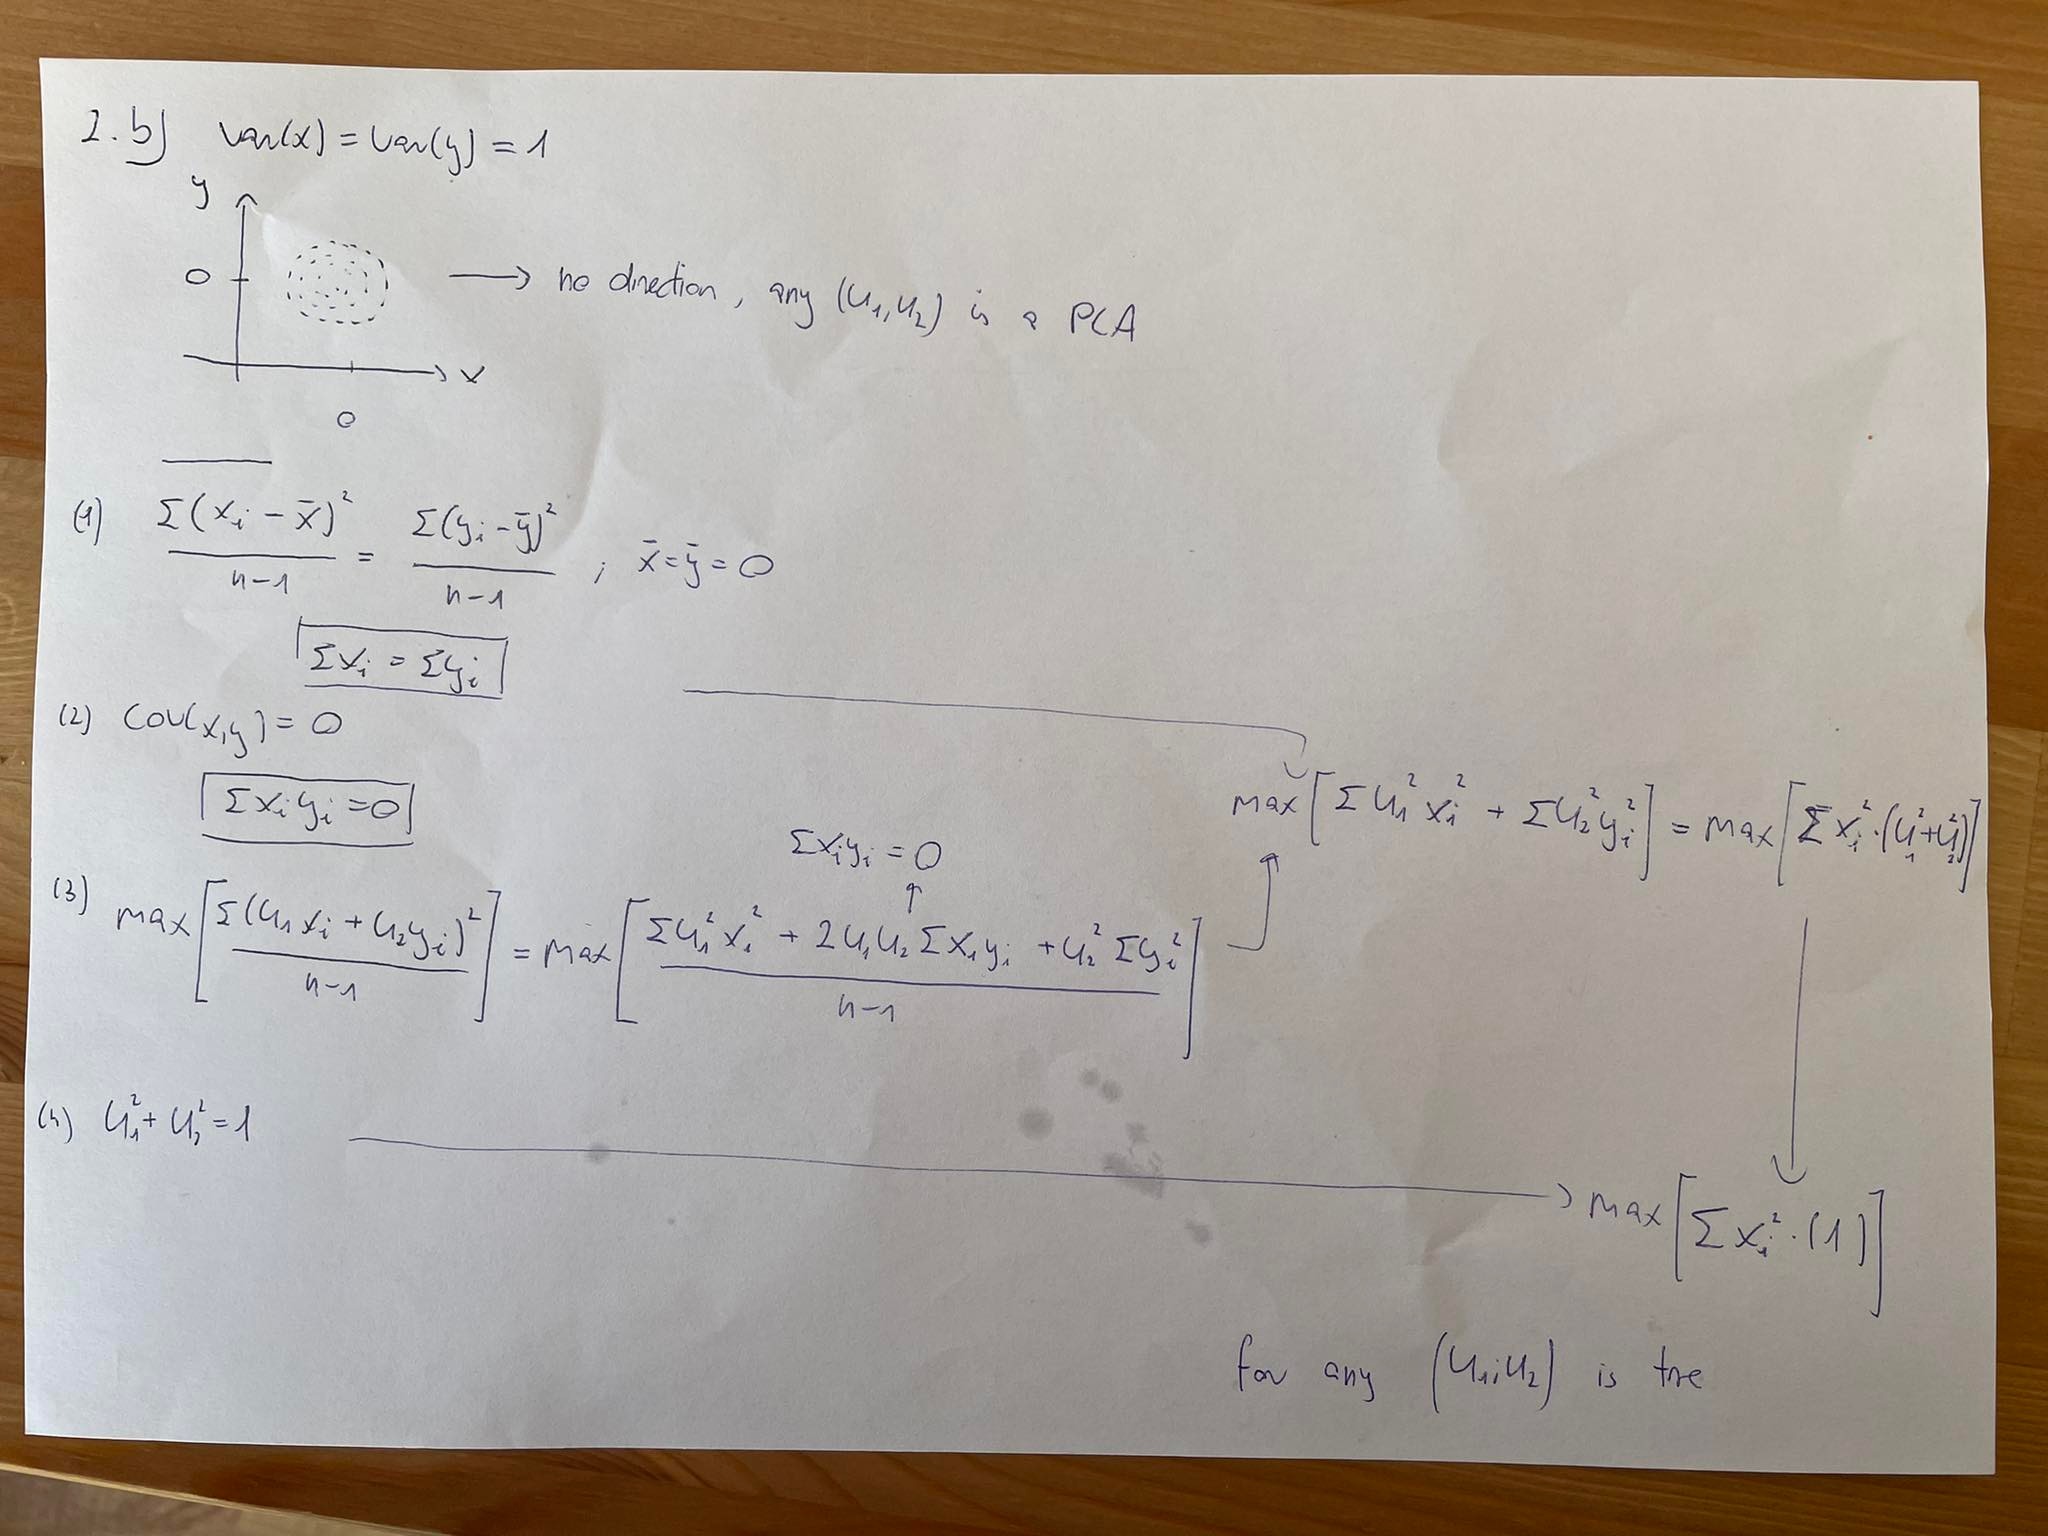 2.b) Var(x) = Var(y) = 1
y
0
x
0
→ no direction, any (u₁,u₂) is a PCA
(1) Σ(xᵢ - x̄)² / n-1 = Σ(yᵢ - ȳ)² / n-1 ; x̄=ȳ=0
Σxᵢ = Σyᵢ
(2) Cov(x,y) = 0
Σxᵢyᵢ=0
(3) max[Σ(u₁xᵢ + u₂yᵢ)² / n-1] = max[Σu₁²xᵢ² + 2u₁u₂Σxᵢyᵢ + u₂²Σyᵢ² / n-1]
Σxᵢyᵢ = 0
max[Σu₁²xᵢ² + Σu₂²yᵢ²] = max[Σxᵢ²·(u₁²+u₂²)]
(4) u₁² + u₂² = 1 → max[Σxᵢ²·(1)]
for any (u₁;u₂) is tre